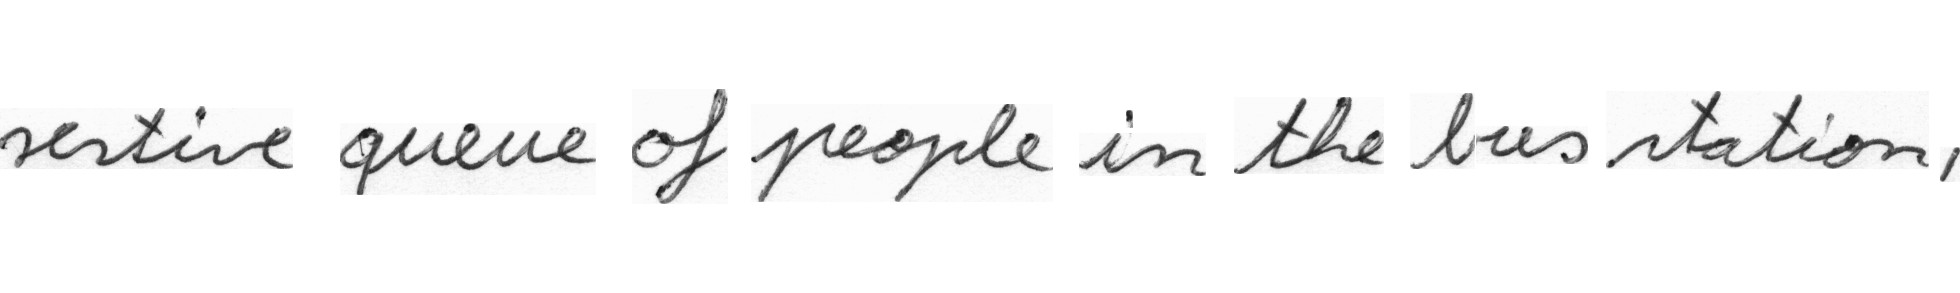 restive queue of people in the bus station,